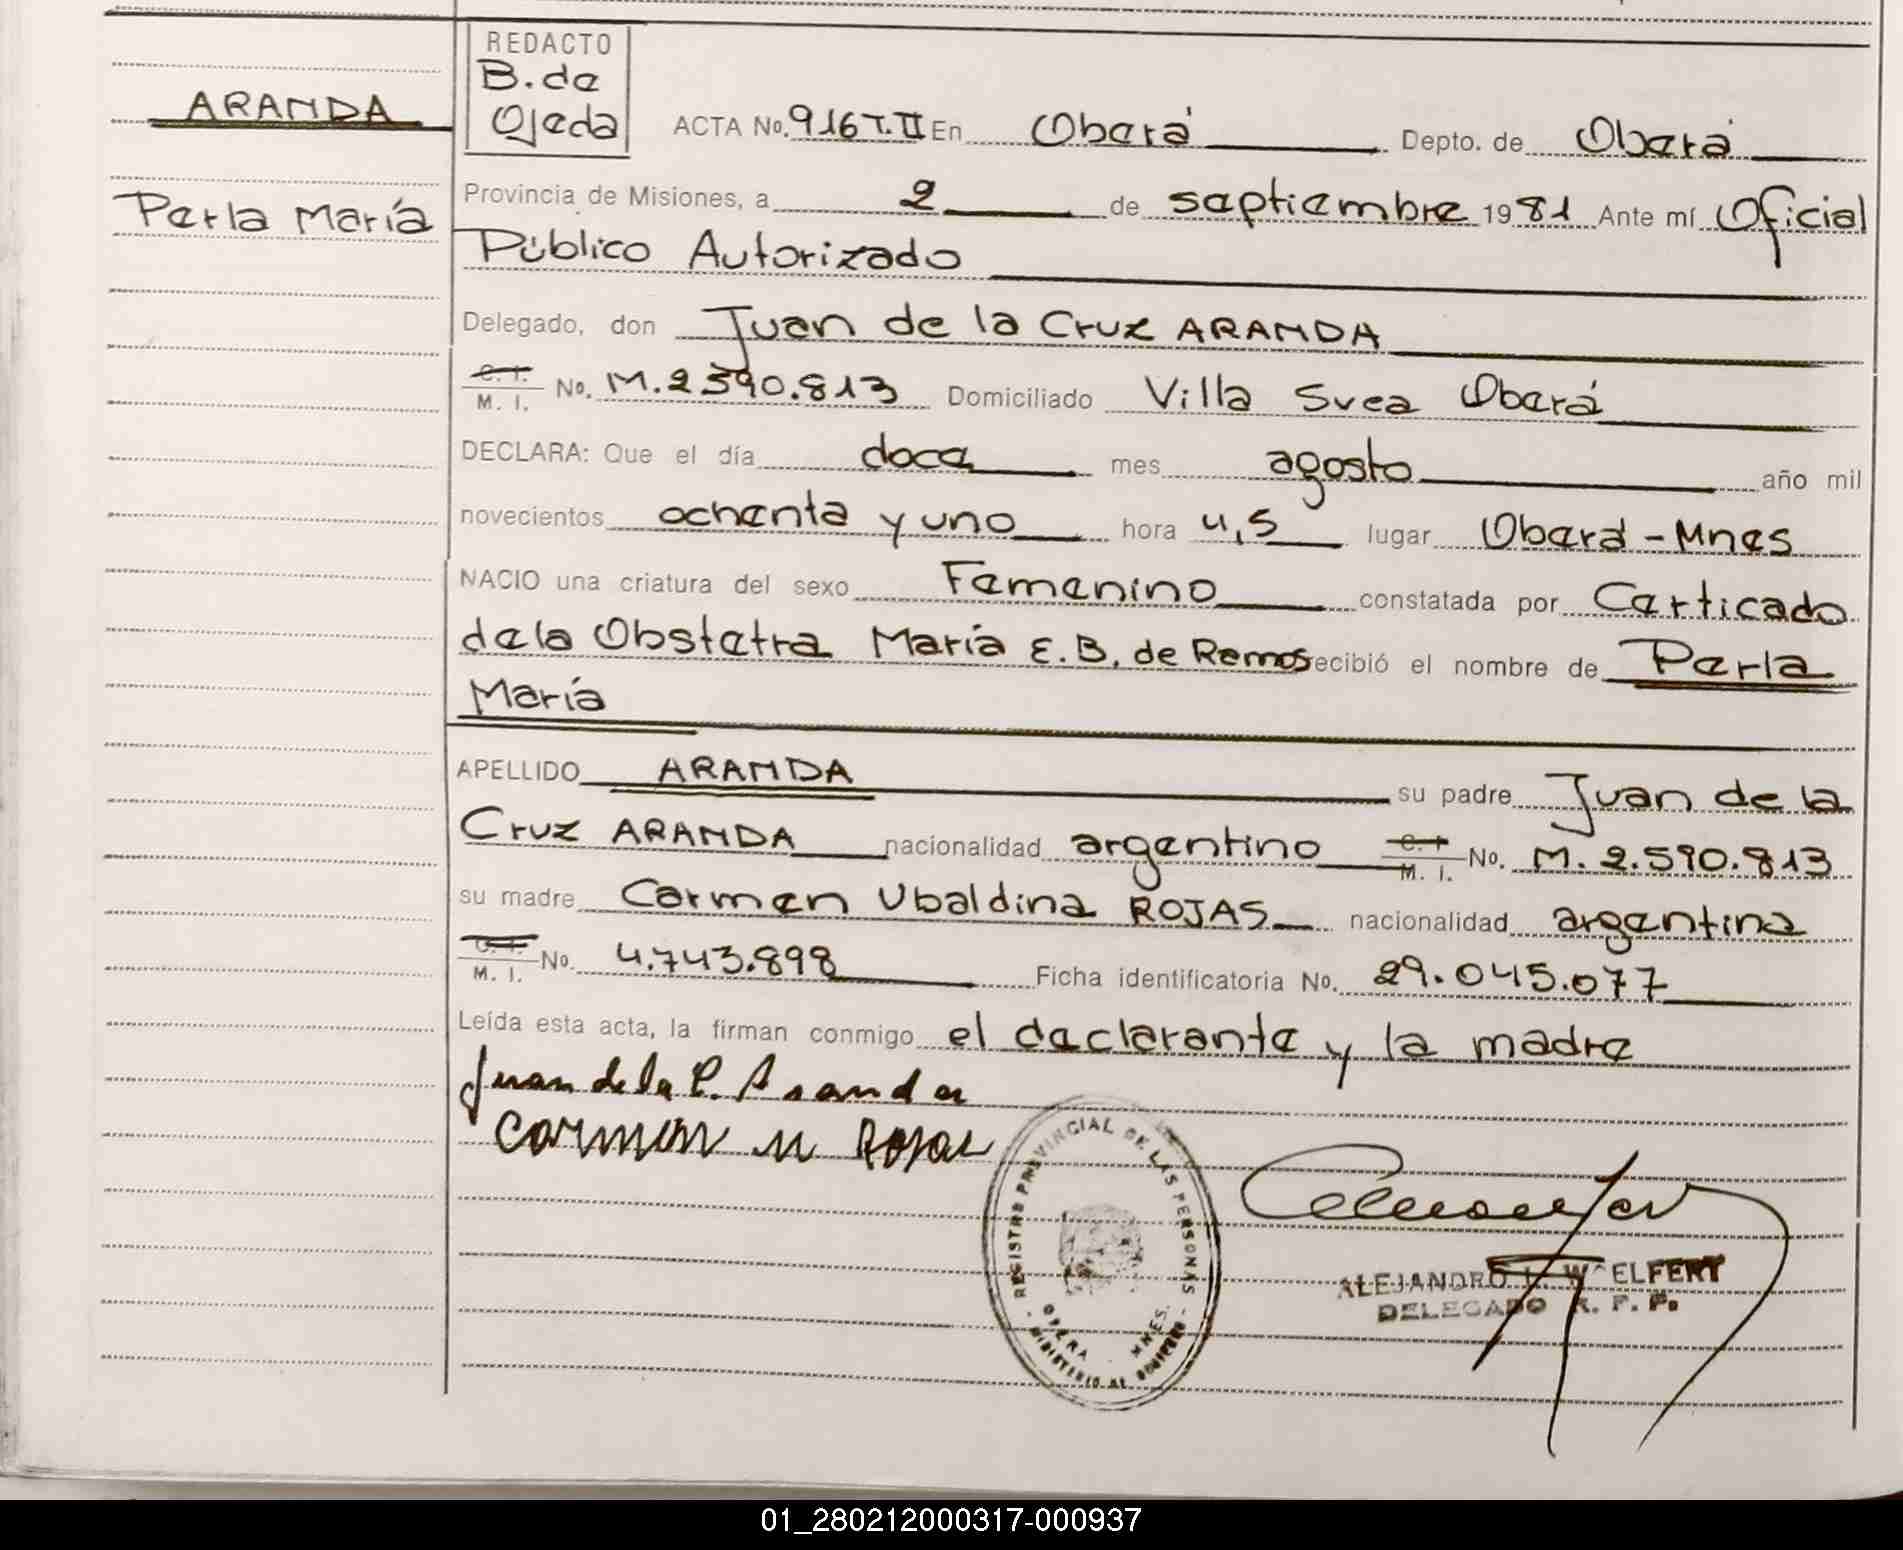 REDACTO
B. de
Ojeda
ARANDA
Perla María
ACTA No. 916 T. II En Oberá Depto. de Oberá
Provincia de Misiones, a 2 de septiembre 1981 Ante mí Oficial
Público Autorizado
Delegado, don Juan de la Cruz ARANDA
C. I.
M. I. No. M. 2590.813 Domiciliado Villa Svea Oberá
DECLARA: Que el día doce mes agosto año mil
novecientos ochenta y uno hora 4,5 lugar Oberá - Mnes
NACIO una criatura del sexo Femenino constatada por Certicado
de la Obstetra María E. B. de Ramos ecibió el nombre de Perla
María
APELLIDO ARANDA su padre Juan de la
Cruz ARANDA nacionalidad argentino C. I.
M. I. No. M. 2.590.813
su madre Carmen Ubaldina ROJAS nacionalidad argentina
C. I.
M. I. No. 4.743.898 Ficha identificatoria No. 29.045.077
Leída esta acta, la firman conmigo el declarante y la madre
Juan de la C. Aranda
Carmen U Rojas
REGISTRO PROVINCIAL DE LAS PERSONAS
OBERA MNES.
MINISTERIO DE GOBIERNO
ALEJANDRO L. W. ELFERT
DELEGADO R. P. P.
01_280212000317-000937